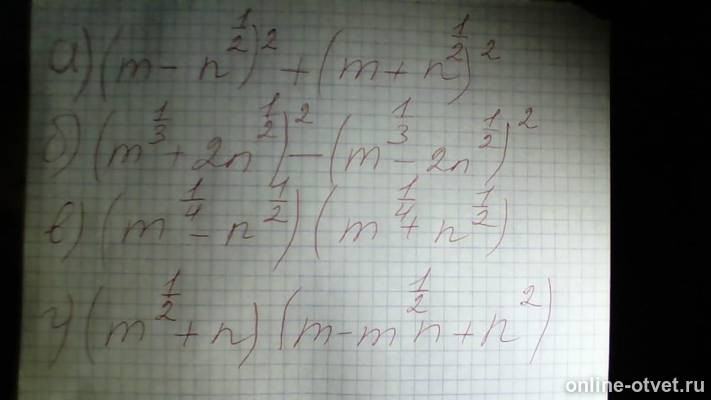 а) (m - n^(1/2))^2 + (m + n^(1/2))^2
б) (m^(1/3) + 2n^(1/2))^2 - (m^(1/3) - 2n^(1/2))^2
в) (m^(1/4) - n^(1/2)) (m^(1/4) + n^(1/2))
г) (m^(1/2) + n) (m - m^(1/2)n + n^2)
online-otvet.ru